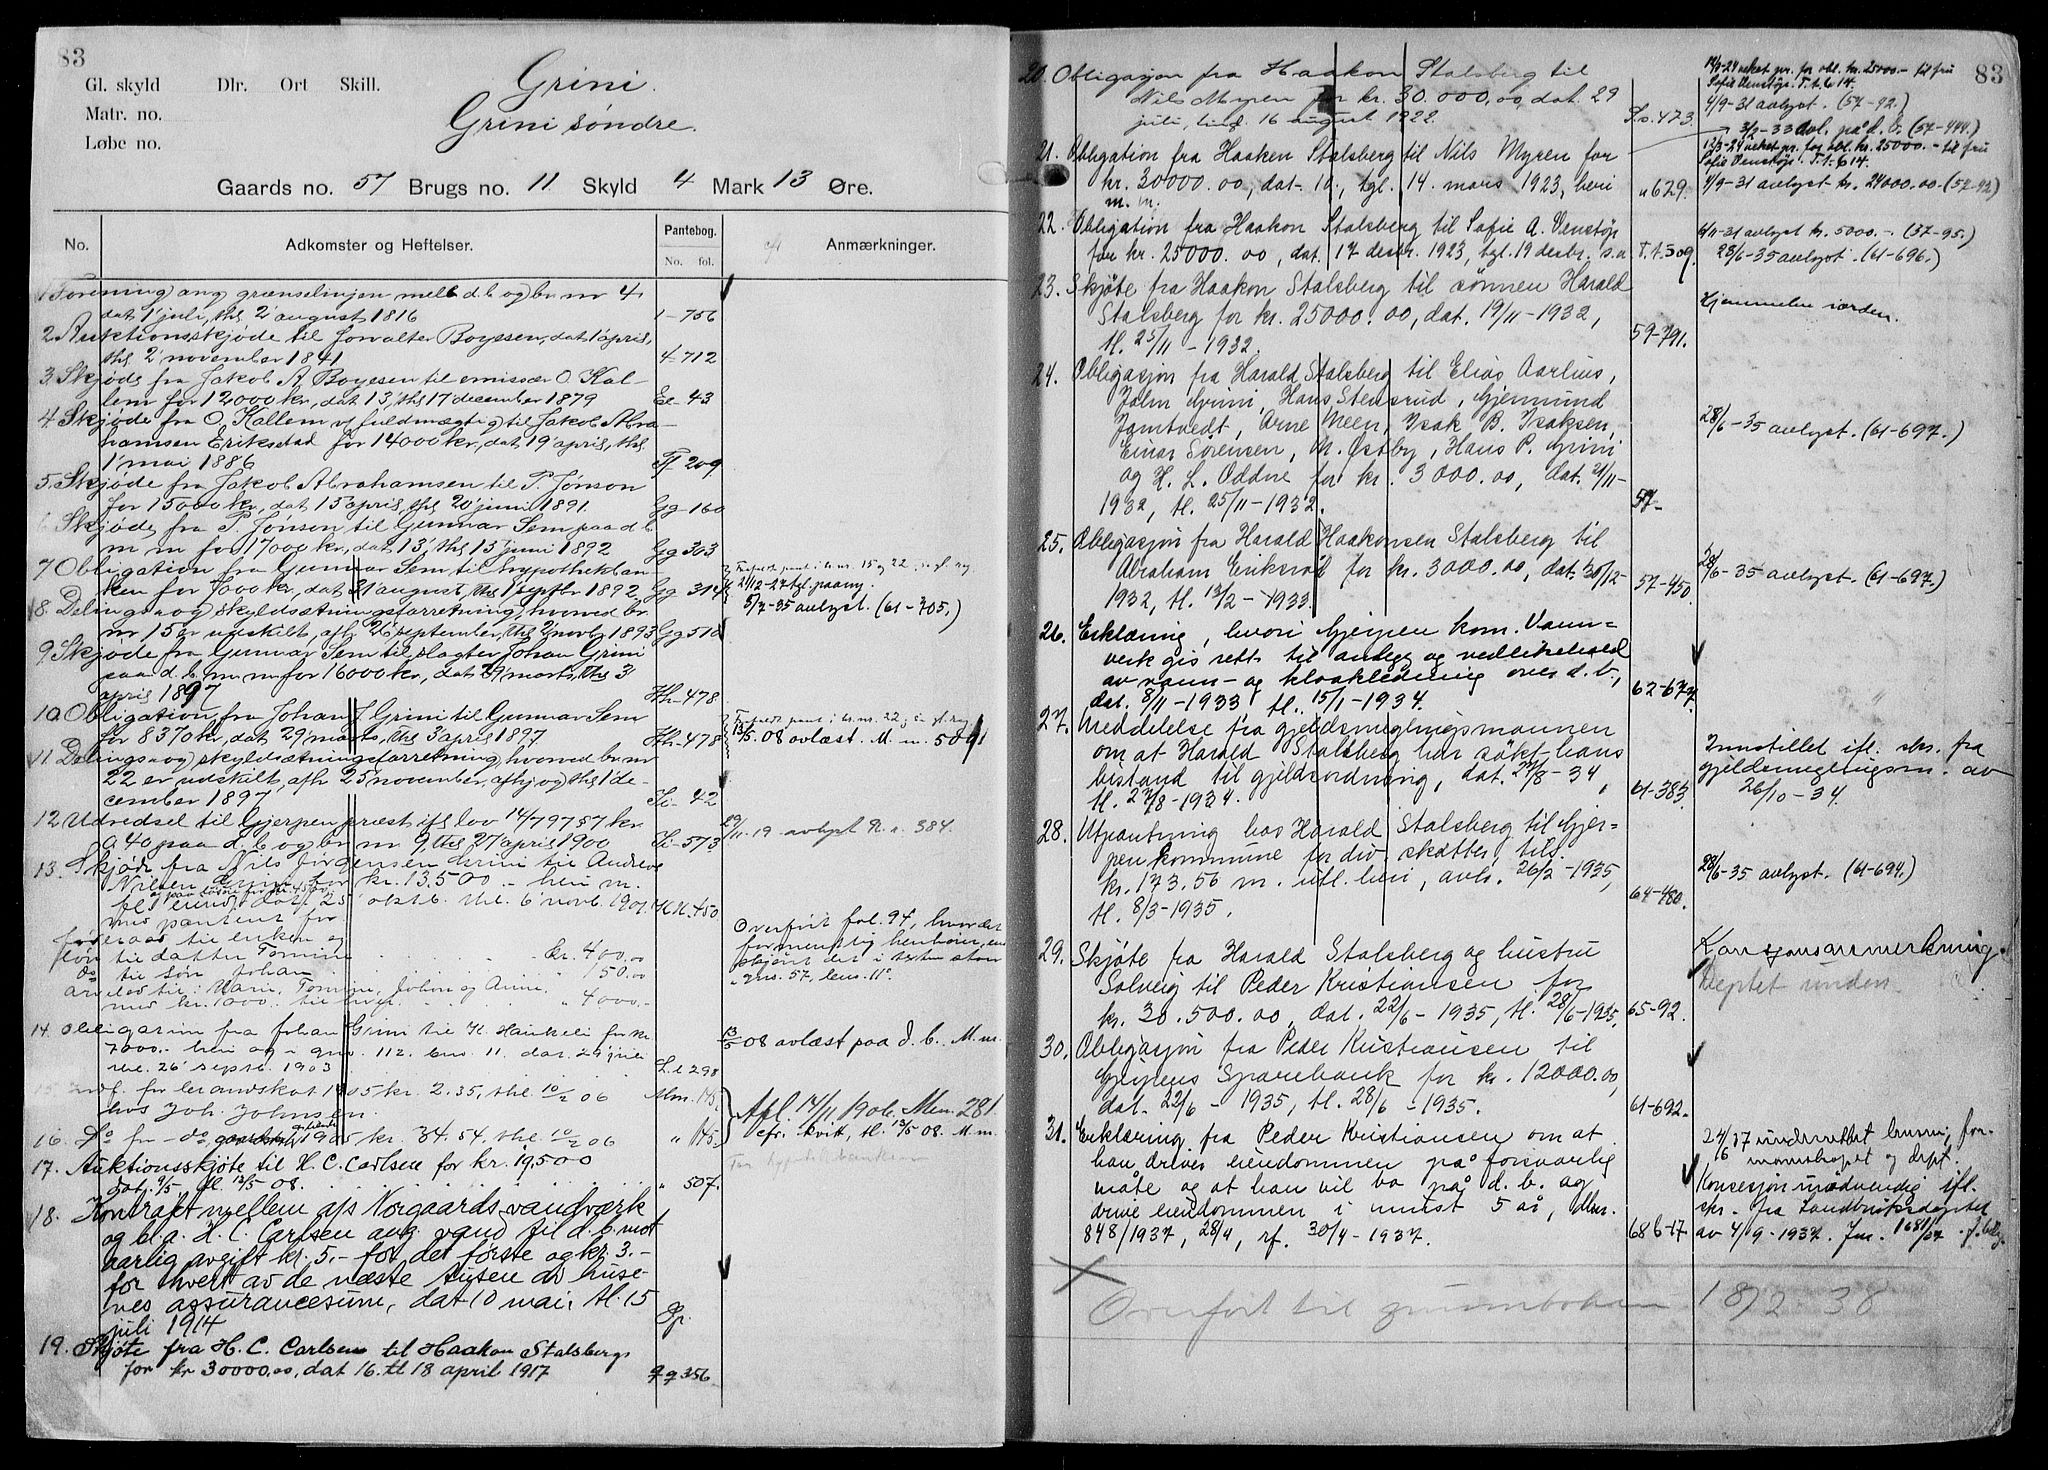 83
Gl. skyld Dlr. Ort Skill.
Matr. no.
Løbe no.
Grini.
Grini søndre.
Gaards no. 57 Brugs no. 11 Skyld 4 Mark 13 Øre.
No.
Adkomster og Heftelser.
Pantebog.
No. fol.
Anmærkninger.
1 Forening ang grænselinjen mell d. b og br nr 4
dat 1 juli, thl 2 august 1816 1-756
2. Auktionsskjøde til forvalter Boyesen, dat 1 april,
thl 2 november 1841 4 712
3. Skjøde fra Jakob A Boyesen til emisær O. Kal-
lem for 12000 kr, dat 13, thl 17 december 1879 Ee- 43
4 Skjøde fra O. Kallem v/ fuldmægtig til Jakob Abra-
hamsen Erikstad for 14000 kr, dat 19 april, thl
1 mai 1886 Ff 209
5. Skjøde fra Jakob Abrahamsen til P. Jonson
for 15000 kr, dat 15 april, thl 20 juni 1891. Gg-160
6 Skjøde fra P. Jonson til Gunnar Sem paa d b
m m for 17000 kr, dat 13, thl 15 juni 1892 Gg 303
7 Obligation fra Gunnar Sem til hypothekban-
ken for 7000 kr, dat 21 august, thl 1 septbr 1892 Gg 314
2/12-27 tgl. paany.
5/7-35 avlyst. (61-705.)
8. Delings og skyldsætningsforretning, hvorved br
nr 15 er udskilt, afh 26 september, thl 2 novbr 1893 Gg 518
9 Skjøde fra Gunnar Sem til slagter Johan Grini
paa d. b m m for 16000 kr, dat 29 marts, thl 3
april 1897 Hh-478
10 Obligation fra Johan J Grini til Gunnar Sem
for 8370 kr, dat 29 marts, thl 3 april 1897 Hh-478
13/5. 08 avlæst. M. m. 509
11 Delings og skyldsætningsforretning, hvorved br nr
22 er udskilt, afh 25 november, afhj og thl 1 de-
cember 1897 Ii- 42
12 Udredsel til Gjerpen præst ifl lov 14/7 97 57 kr
a 40 paa d. b og br nr 9 thl 27 april 1900 Ii-573
29/11. 19 avlyst R. r. 384.
13. Skjøde fra Nils Jørgensen Grini til Andreas
Nilsen Grini for kr. 13.500.- heri m.
fl. eiend. dat. 25 oktb. thl. 6 novb. 1901 Kk. 450
med pantent for
føderaad til enken og
til datter Tomine kr. 400.00
do til søn Johan " 50.00
arvelod til: Maren, Tomine, Johan og Anne
med kr. 1000.- til hver " 4000.-
Overført fol. 94, hvor det
formentlig henhører,
skjønt det i texten staar
gns. 57, bns. 11.
14. Obligation fra Johan Grini til H. Haukeli for kr
7000.- heri og i gns. 112. bns. 11. dat. 29 juli
thl. 26 septb. 1903 L.l 298
13/5 08 avlæst paa d. b. M. m.
15 Udl. for brandskat 1905 kr. 2.35, thl. 10/2 06 Mm. 145.
hos Joh. Johnsen.
16. Do for do 1905 kr. 34.54, thl. 10/2 06 " 145.
Afl. 14/11 1906. Mm. 281.
cfr. kvitt, tl. 13/5 08. M. m.
17. Auktionsskjøte til H. C. Carlsen for kr. 19.500
dat. 9/5. tl. 13/5 08. " 507.
18. Kontrakt mellem a/s Norgaards vandværk
og b. a. H. C. Carlsen ang. vand til d. b. mot
aarlig avgift kr. 5.- for det første og kr. 3.-
for hvert av de næste tusen av huse-
nes assurancesum, dat 10 mai, tl. 15
juli 1914 Pp.
19. Skjøte fra H. C. Carlsen til Haakon Stalsberg
for kr 30000.00, dat 16. tl 18 april 1917 Qq 356
83
20. Obligasjon fra Haakon Stalsberg til
Nils Myren for kr. 30.000,00, dat. 29
juli, tingl. 16 august 1922. S.s. 473.
12/3-24 veket pr. for obl. kr. 25000.- til fru
Sofie Venstøp. T.t. 614.
4/9-31 avlyst. (57-92.)
3/2-33 avl. på d. b. (57-444.)
21. Obligation fra Haaken Stalsberg til Nils Myren for
kr. 30000.00, dat. 10., tgl. 14. mars 1923, heri
m. m. " 629.
12/3-24 veket pr. for obl. kr. 25000.- til fru
Sofie Venstøp. T.t. 614.
4/9-31 avlyst kr. 24000.00 (57-92)
22. Obligation fra Haakon Stalsberg til Sofie A. Venstøp
for kr. 25000.00, dat. 17 desbr. 1923, tgl. 19 desbr. s. a T.t. 509.
6/11-31 avlyst kr. 5000.- (37-95.)
28/6-35 avlyst. (61-696.)
23. Skjøte fra Haakon Stalsberg til sønnen Harald
Stalsberg for kr. 25000.00, dat. 19/11-1932,
tl. 25/11-1932. 59-791.
Hjemmelen iorden.
24. Obligasjon fra Harald Stalsberg til Elias Aarhus,
John Grini, Hans Stensrud, Gjermund
Jamtvedt, Arne Meen, Isak B. Isaksen,
Einar Sørensen, M. Østby, Hans P. Grini
og H. L. Oddne for kr. 3000.00, dat. 21/11-
1932, tl. 25/11-1932. 57-
28/6-35 avlyst. (61-697.)
25. Obligasjon fra Harald Haakonsen Stalsberg til
Abraham Eriksrød for kr. 3000.00, dat. 30/12-
1932, tl. 13/2-1933 57-450.
28/6-35 avlyst. (61-697.)
26. Erklæring, hvori Gjerpen kom. Vann-
verk gis rett til anlegg og vedlikehold
av vann- og kloakledning over d. b.,
dat. 8/11-1933 tl. 15/1-1934. 62-677.
27. Meddelelse fra gjeldsmeglingsmannen
om at Harald Stalsberg har søkt hans
bistand til gjeldsordning, dat. 27/8-34,
tl. 27/8-1934. 61-383.
Innstillet ifl. skr. fra
gjeldsmeglingsm. av
26/10-34.
28. Utpantning hos Harald Stalsberg til Gjer-
pen kommune for div. skatter, tils.
kr. 173.56 m. utl. heri, avh. 26/2-1935,
tl. 8/3-1935. 64-480.
28/6-35 avlyst. (61-694.)
29. Skjøte fra Harald Stalsberg og hustru
Solveig til Peder Kristiansen for
kr. 30.500.00, dat. 22/6-1935, tl. 28/6-1935, 65-92.
Konsesjonsanmerkning.
Deptet underr.
30. Obligasjon fra Peder Kristiansen til
Gjerpens Sparebank for kr. 12000.00,
dat. 22/6-1935, tl. 28/6-1935. 61-692.
31. Erklæring fra Peder Kristiansen om at
han driver eiendommen på forsvarlig
måte og at han vil bo på d. b. og
drive eiendommen i minst 5 år, dbnr.
848/1937, 28/4, rf. 30/4-1937. 68 b-17
24/6 37 underrettet lensm., for-
mannskapet og dept.
Konsesjon unødvendig ifl.
skr. fra Landbruksdeptet
av 4/9-1937. Jnr. 1681/37
Overført til grunnboken 18/2 38